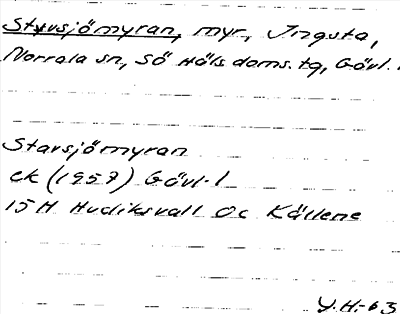 Styvsjömyran, myr, Ingsta,
Norrala sn, Sö Häls doms. tg, Gävl. l
Stavsjömyran
ek (1957) Gävl. l
15H Hudiksvall Oc Källene
Y.H.-63